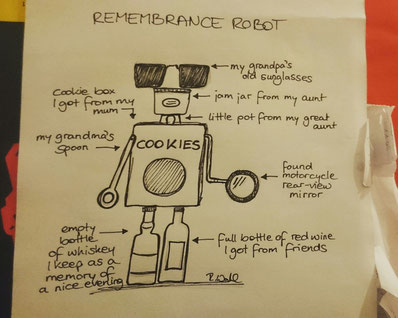 REMEMBRANCE ROBOT
my grandpa's
old sunglasses
cookie box
I got from my
mum
jam jar from my aunt
little pot from my great
aunt
my grandma's
spoon
COOKIES
found
motorcycle
rear-view
mirror
empty
bottle
of whiskey
I keep as a
memory of
a nice evening
full bottle of red wine
I got from friends